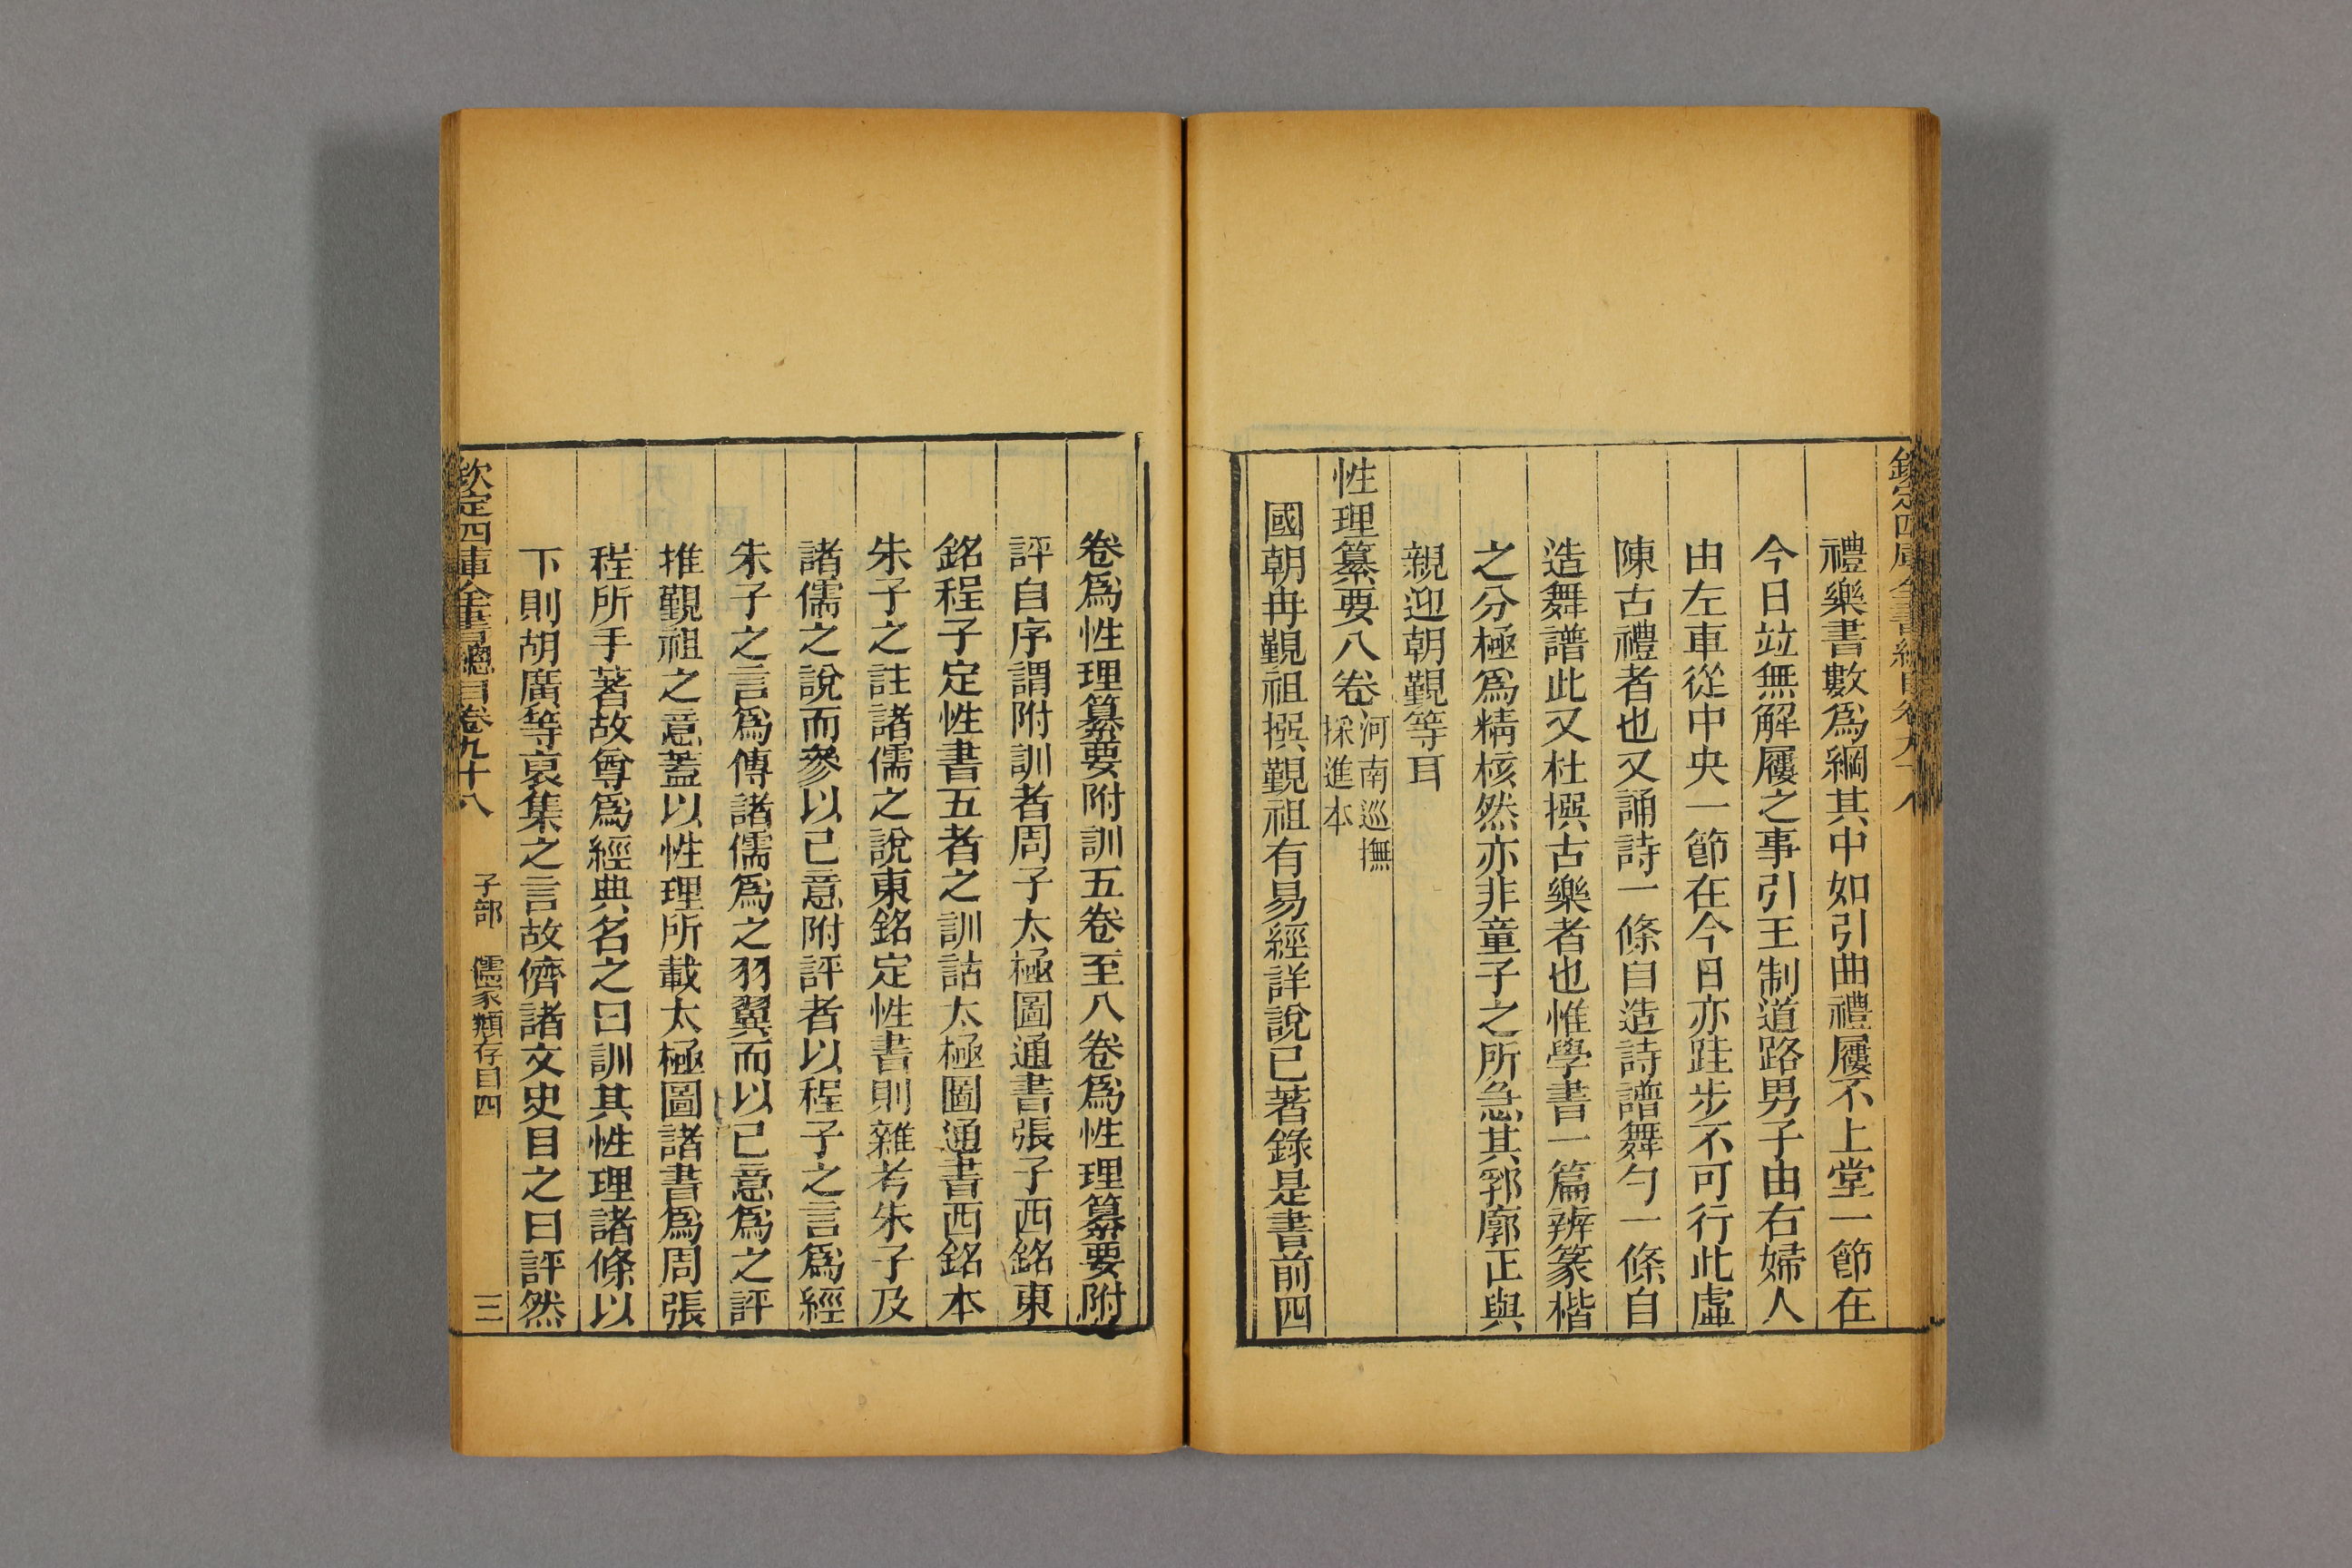 欽定四庫全書總目卷九十八
禮樂書數爲綱其中如引曲禮屨不上堂一節在
今日竝無解屨之事引王制道路男子由右婦人
由左車從中央一節在今日亦跬步不可行此虛
陳古禮者也又誦詩一條自造詩譜舞勺一條自
造舞譜此又杜撰古樂者也惟學書一篇辨篆楷
之分極爲精核然亦非童子之所急其郛廓正與
親迎朝覲等耳
性理纂要八卷河南巡撫採進本
國朝冉覲祖撰覲祖有易經詳說已著錄是書前四
卷爲性理纂要附訓五卷至八卷爲性理纂要附
評自序謂附訓者周子太極圖通書張子西銘東
銘程子定性書五者之訓詁太極圖通書西銘本
朱子之註諸儒之說東銘定性書則雜考朱子及
諸儒之說而參以己意附評者以程子之言爲經
朱子之言爲傳諸儒爲之羽翼而以己意爲之評
推覲祖之意蓋以性理所載太極圖諸書爲周張
程所手著故尊爲經典名之曰訓其性理諸條以
下則胡廣等裒集之言故儕諸文史目之曰評然
欽定四庫全書總目卷九十八 子部 儒家類存目四 三